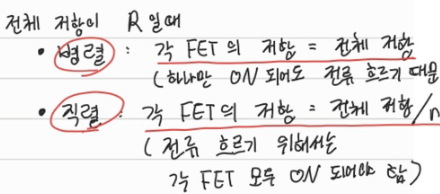 전체 저항이 R 일때
• 병렬 : 각 FET 의 저항 = 전체 저항
(하나만 ON 되어도 전류 흐르기 때문
• 직렬 : 각 FET의 저항 = 전체 저항/n
( 전류 흐르기 위해서는
각 FET 모두 ON 되어야 함)